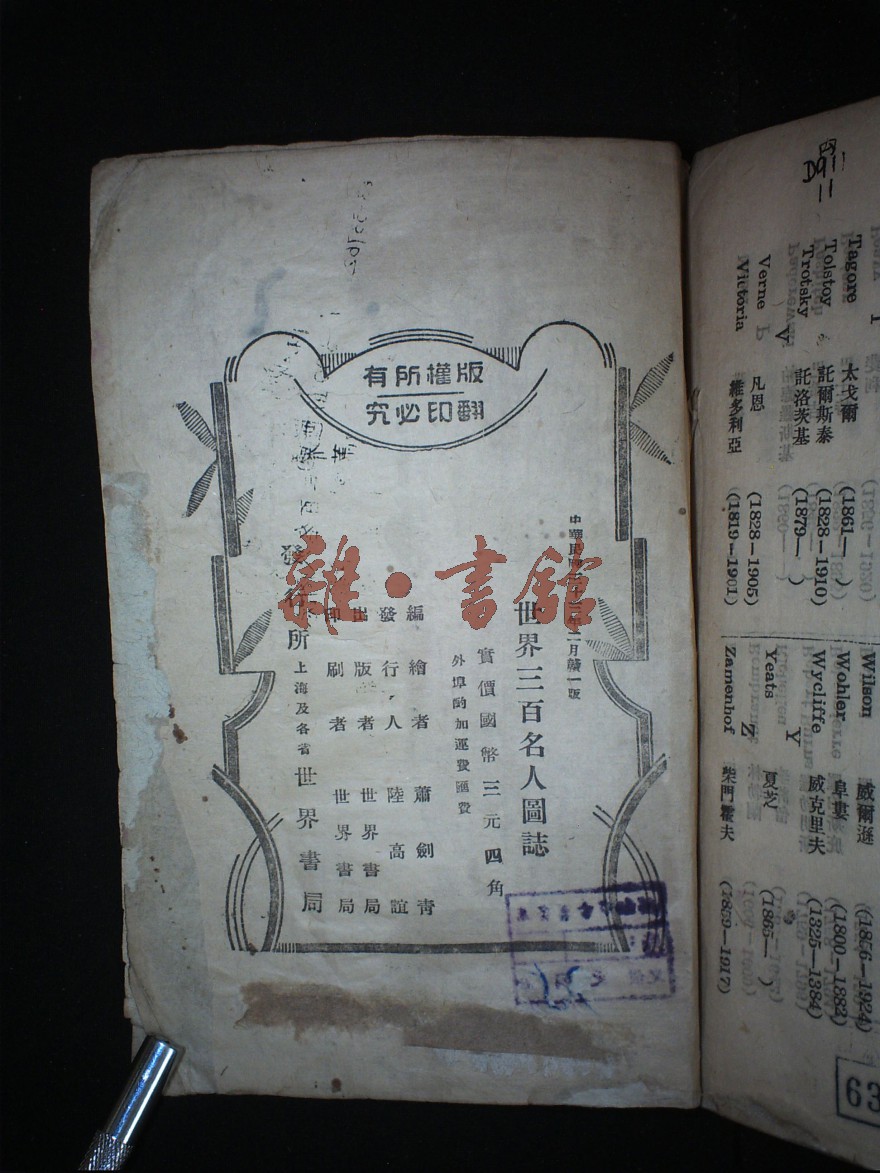 版權所有
翻印必究
世界三百名人圖誌
實價國幣三元四角
外埠酌加運費匯費
編繪者 蕭劍青
發行人 陸高誼
出版者 世界書局
印刷者 世界書局
發行所 上海及各省 世界書局
雜·書館
Tagore 太戈爾 (1861— )
Tolstoy 託爾斯泰 (1828—1910)
Trotsky 託洛茨基 (1879— )
V
Verne 凡恩 (1828—1905)
Victoria 維多利亞 (1819—1901)
Wilson 威爾遜 (1856—1924)
Wohler 阜婁 (1800—1882)
Wycliffe 威克里夫 (1325—1384)
Y
Yeats 夏芝 (1865— )
Z
Zamenhof 柴門霍夫 (1859—1917)
63